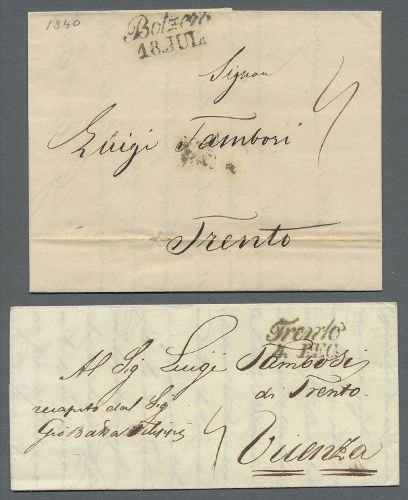 1840
Botzen
18. JUL.
Signor
Luigi Tambosi
Trento
Trento
4. DEC.
Al Sig Luigi Tambosi
di Trento.
recapito dal Sig
Gio Batta
Vicenza